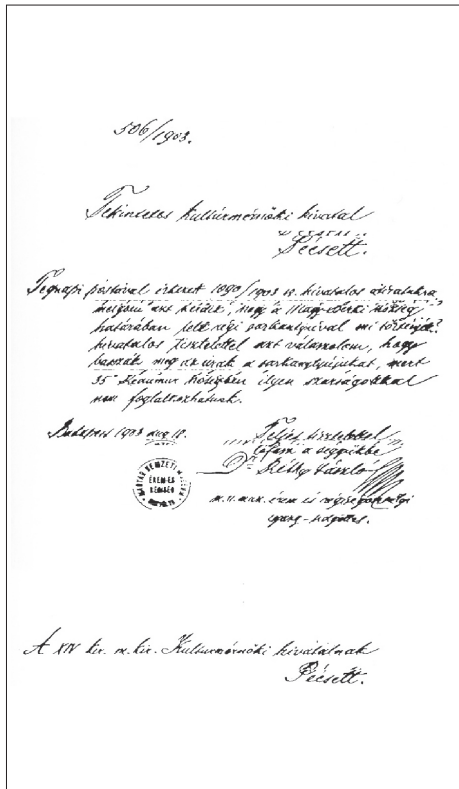 506/1903.
Tekintetes kultúrmérnöki hivatal
Pécsett.
Tegnapi postával érkezett 1090/1903 sz. hivatalos átiratukra
melyben azt kérdik, hogy a Nagy-eberki község
határában lelt régi sarkantyúval mi történjék?
hivatalos tisztelettel azt válaszolom, hogy
basszák meg az urak a sarkantyújukat, mert
35° Réaumur hőségben ilyen szarságokkal
nem foglalkozhatunk.
Budapest 1903 aug 18.
Teljes tisztelettel
Dr. Réthy László
MAGYAR NEMZETI
ÉREM ÉS
m. n. muz. érem és régiségosztályi
igazg.
A XIV ker. m. kir. Kultúrmérnöki hivatalnak
Pécsett.